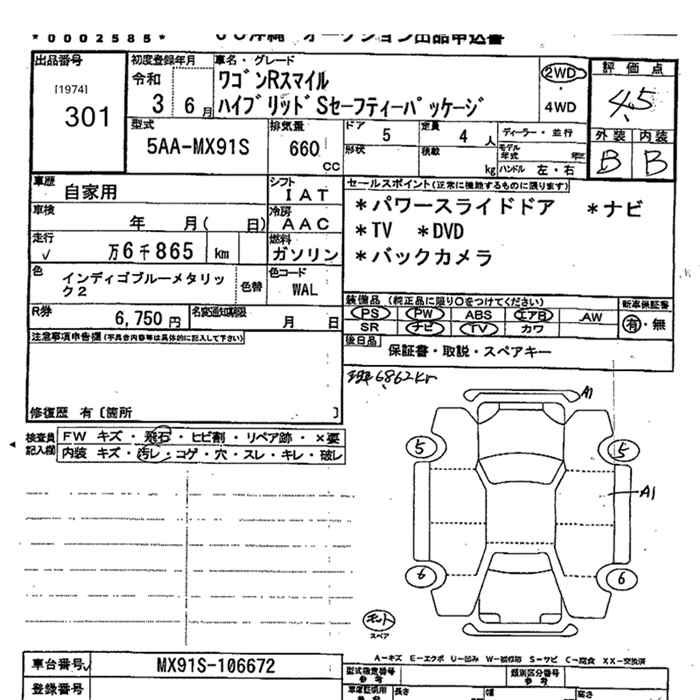 *0002585*
JU沖縄 オークション出品申込書
出品番号
[1974]
301
初度登録年月
令和
3 6月
車名・グレード
ワゴンRスマイル
ハイブリッドSセーフティーパッケージ
2WD
・
4WD
評価点
4.5
外装 内装
B B
型式
5AA-MX91S
排気量
660
CC
ドア 5
形状
定員 4 人
積載 kg
ディーラー・並行
モデル年式 年式
ハンドル 左・右
車歴
自家用
シフト
IAT
車検
年 月( 日)
冷房
AAC
走行
√ 万6千865 km
燃料
ガソリン
色
インディゴブルーメタリック2
色替
色コード
WAL
R券
6,750円
名変通知期限
月 日
セールスポイント(正常に機能するものに限ります)
*パワースライドドア *ナビ
*TV *DVD
*バックカメラ
装備品 (純正品に限り○をつけてください)
PS PW ABS エアB AW
SR ナビ TV カワ
新車保証書
有・無
後日品
保証書・取説・スペアキー
注意事項申告欄(不具合内容等は具体的に記入して下さい)
修復歴 有〔箇所 〕
6862km
検査員記入欄
FW キズ・飛石・ヒビ割・リペア跡・×要
内装 キズ・汚レ・コゲ・穴・スレ・キレ・破レ
A1
5 5
A1
6 6
キット
スペア
A-キズ E-エクボ U-凹み W-補修跡 S-サビ C-腐食 XX-交換済
車台番号
MX91S-106672
登録番号
型式指定番号
参考
類別区分番号
参考
長さ 幅 高さ